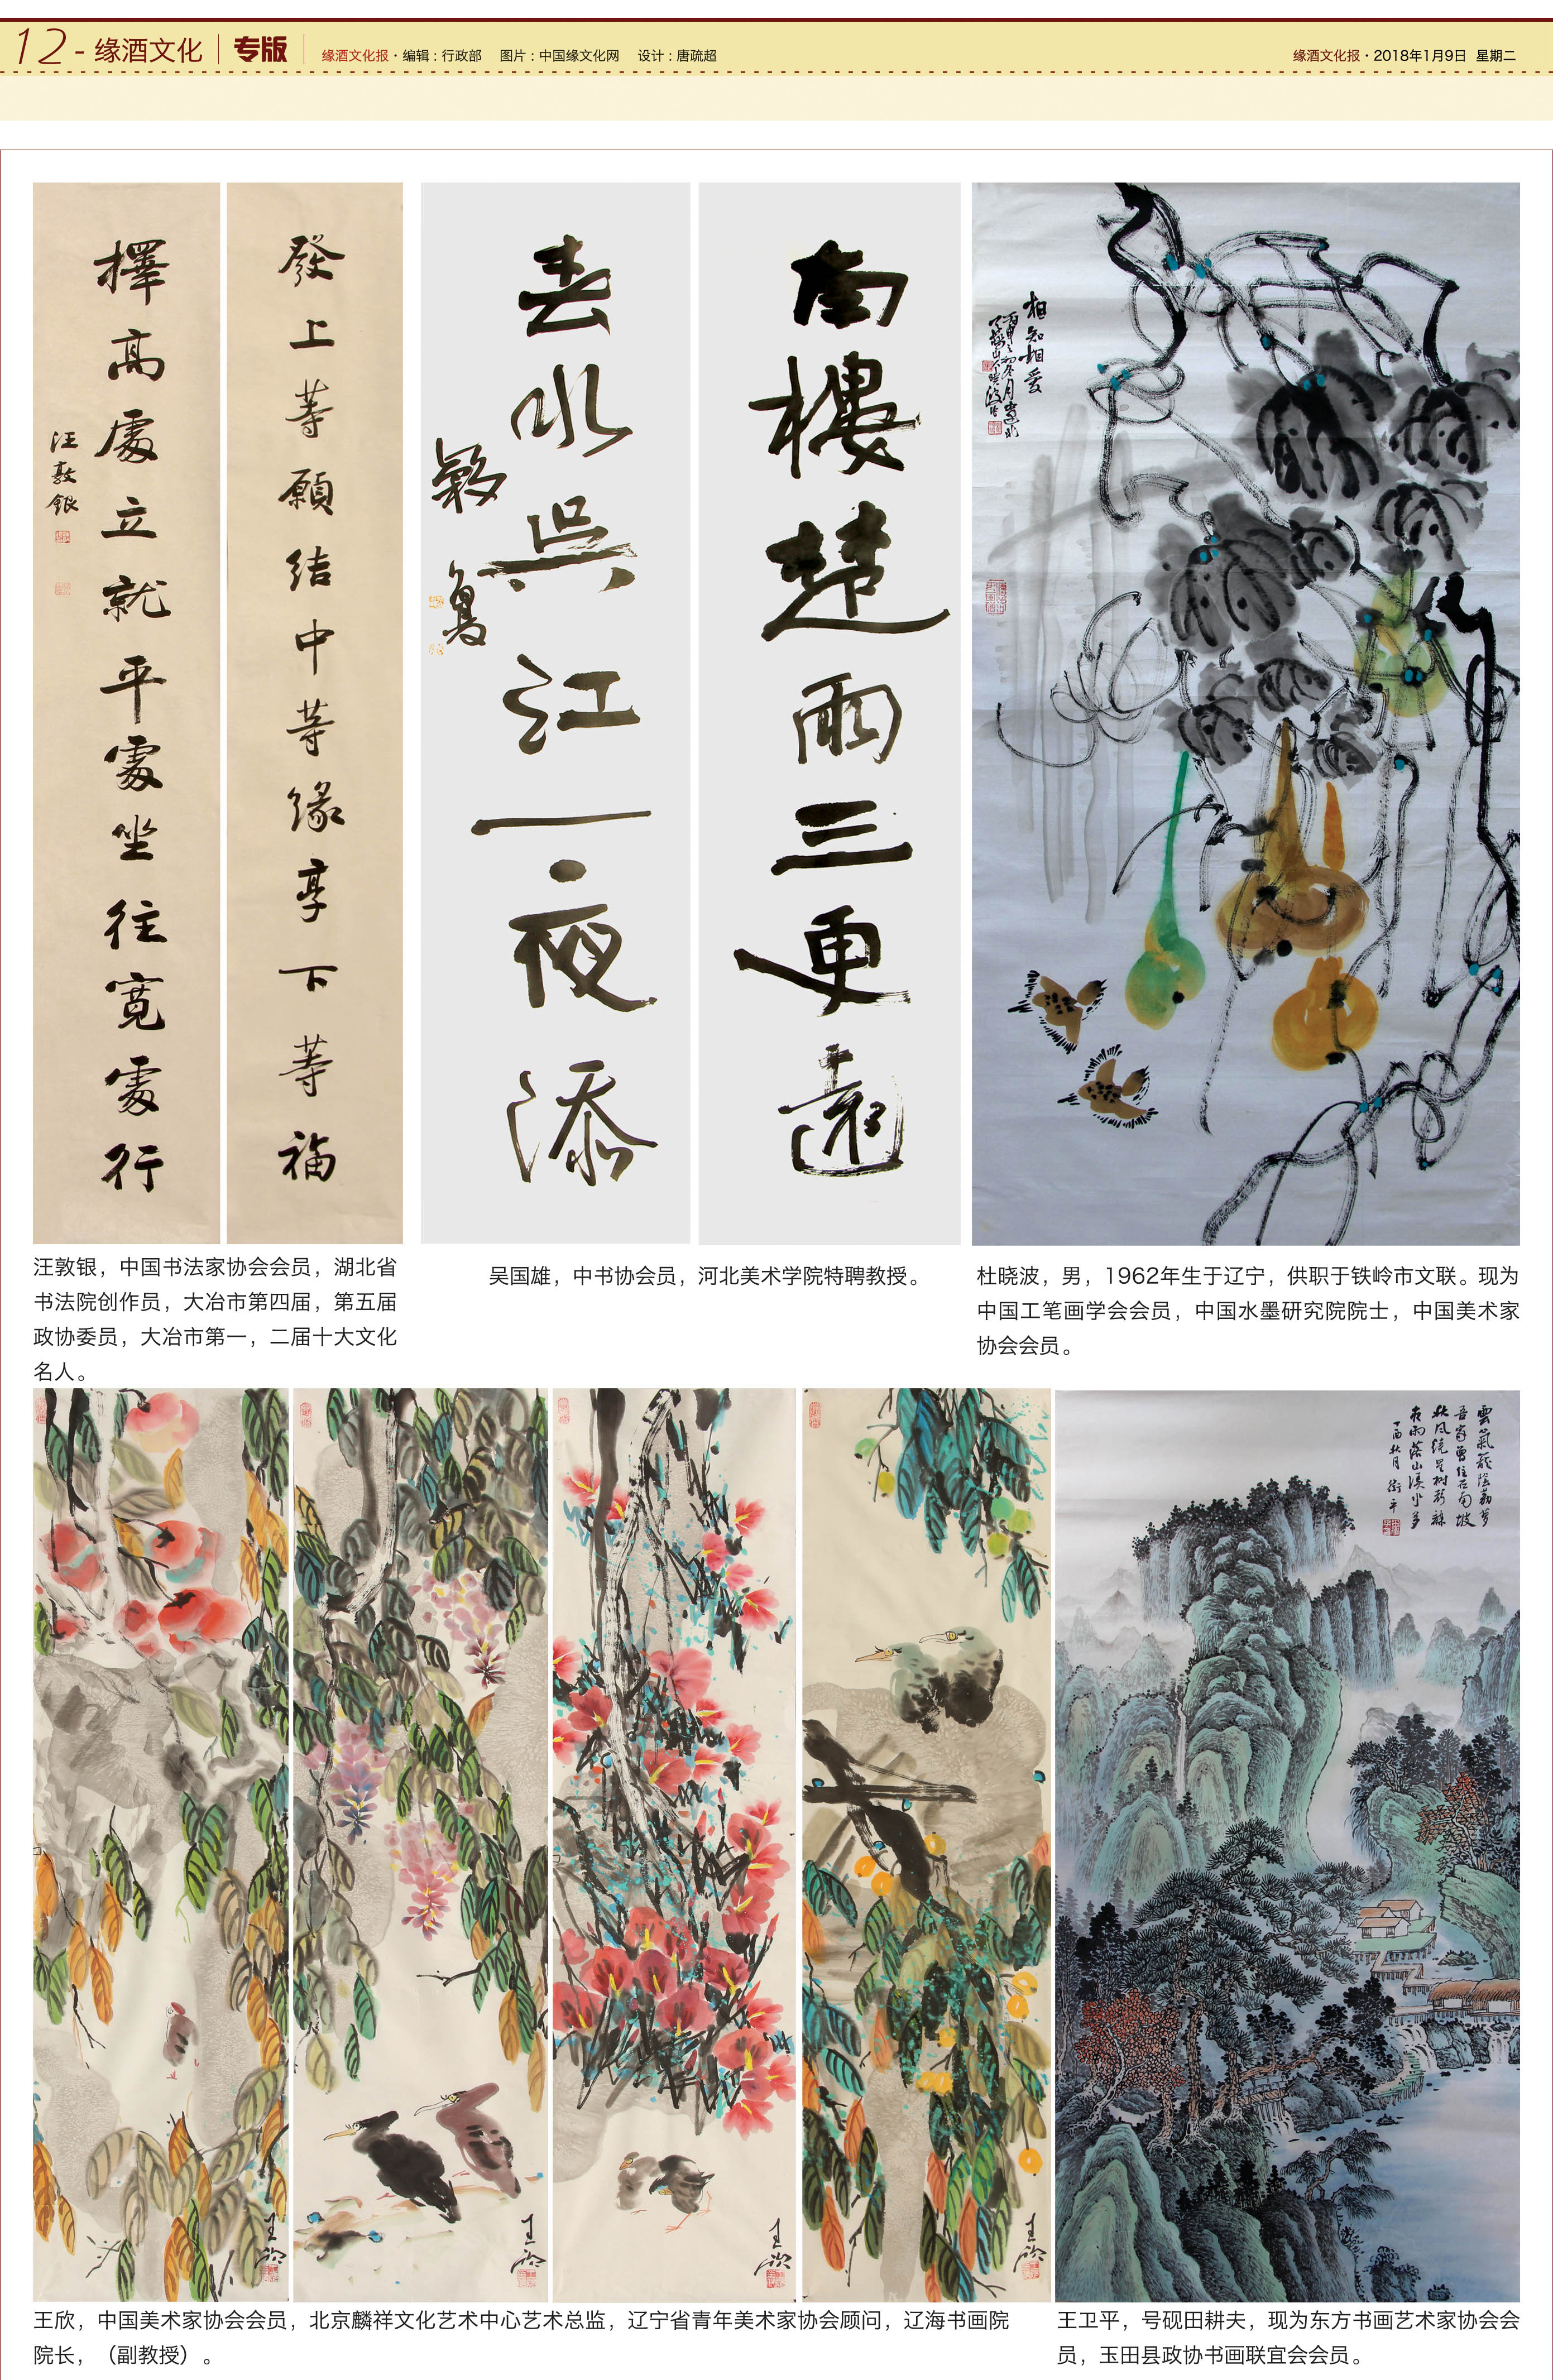 12 - 缘酒文化 专版 缘酒文化报·编辑：行政部 图片：中国缘文化网 设计：唐疏超 缘酒文化报·2018年1月9日 星期二
發上等願結中等緣享下等福
擇高處立就平處坐往寬處行
汪敦銀
南樓楚雨三更遠
春水吳江一夜添
相知相爱
汪敦银，中国书法家协会会员，湖北省
书法院创作员，大冶市第四届，第五届
政协委员，大冶市第一，二届十大文化
名人。
吴国雄，中书协会员，河北美术学院特聘教授。
杜晓波，男，1962年生于辽宁，供职于铁岭市文联。现为
中国工笔画学会会员，中国水墨研究院院士，中国美术家
协会会员。
王欣
王欣
王欣
王欣
丁酉秋月 衛平
王欣，中国美术家协会会员，北京麟祥文化艺术中心艺术总监，辽宁省青年美术家协会顾问，辽海书画院
院长，（副教授）。
王卫平，号砚田耕夫，现为东方书画艺术家协会会
员，玉田县政协书画联宜会会员。